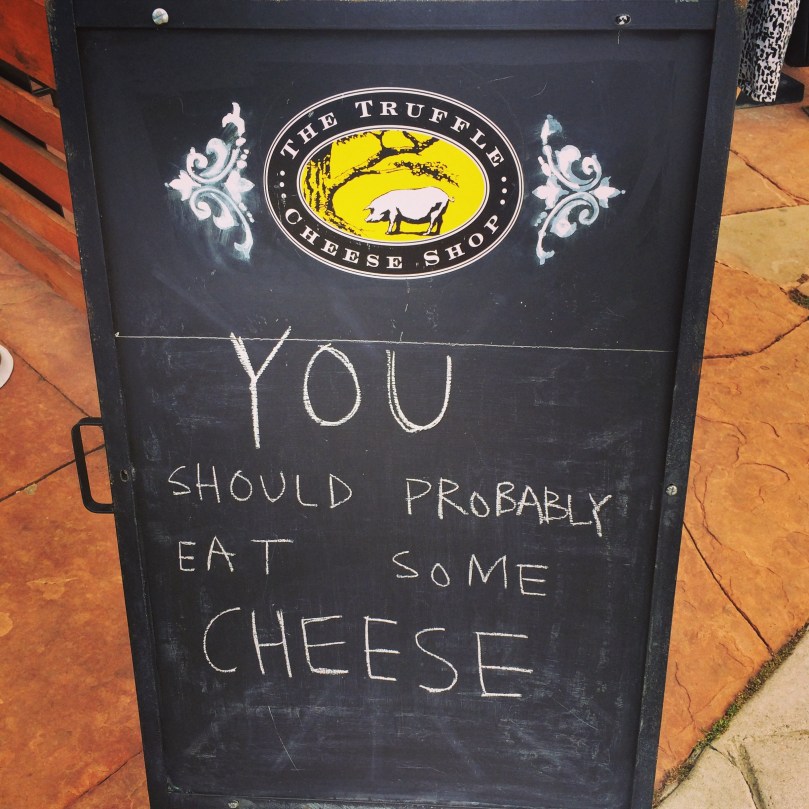 THE TRUFFLE
CHEESE SHOP
YOU
SHOULD PROBABLY
EAT SOME
CHEESE